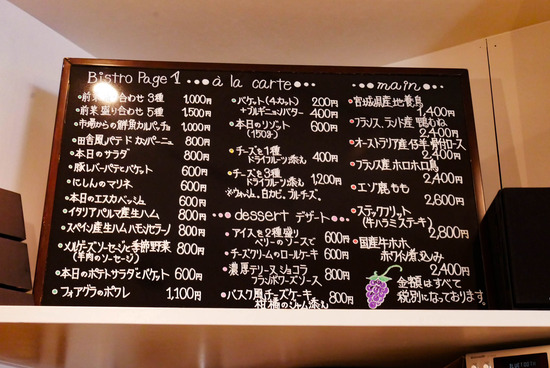 Bistro Page 1 ●●● à la carte ●●●
・前菜盛り合わせ 3種 1,000円
・前菜盛り合わせ 5種 1,500円
・市場からの鮮魚カルパッチョ 1,000円
・田舎風パテ ド カンパーニュ 800円
・本日のサラダ 800円
・豚レバーパテとバケット 600円
・にしんのマリネ 600円
・本日のエスカベッシュ 600円
・イタリア パルマ産生ハム 800円
・スペイン産生ハム ハモンセラーノ 800円
・メルゲーズソーセージと季節野菜 800円
(羊肉のソーセージ)
・本日のポテトサラダとバケット 600円
・フォアグラのポワレ 1,100円
・バケット (4カット) 200円
+ブルギニョンバター 400円
・本日のリゾット 600円
(150g)
・チーズを1種 400円
ドライフルーツ添え
・チーズを3種 1,200円
ドライフルーツ添え
※ウォッシュ、白カビ、ブルチーズ。
●●● dessert デザート ●●●
・アイスを2種盛り 600円
ベリーのソースで
・チーズクリームのロールケーキ 600円
・濃厚テリーヌ ショコラ 800円
フランボワーズソース
・バスク風チーズケーキ 800円
柑橘のジャム添え
●●● main ●●●
・宮城県産地養鳥 1,400円
・フランス、ランド産 鴨むね 2,400円
・オーストラリア産 仔羊 骨付ロース 2,400円
・フランス産ホロホロ鳥 2,400円
・エゾ鹿もも 2,600円
・ステックフリット 2,800円
(牛ハラミステーキ)
・国産牛ホホ
赤ワイン煮込み 2,400円
金額はすべて
税別になっております。